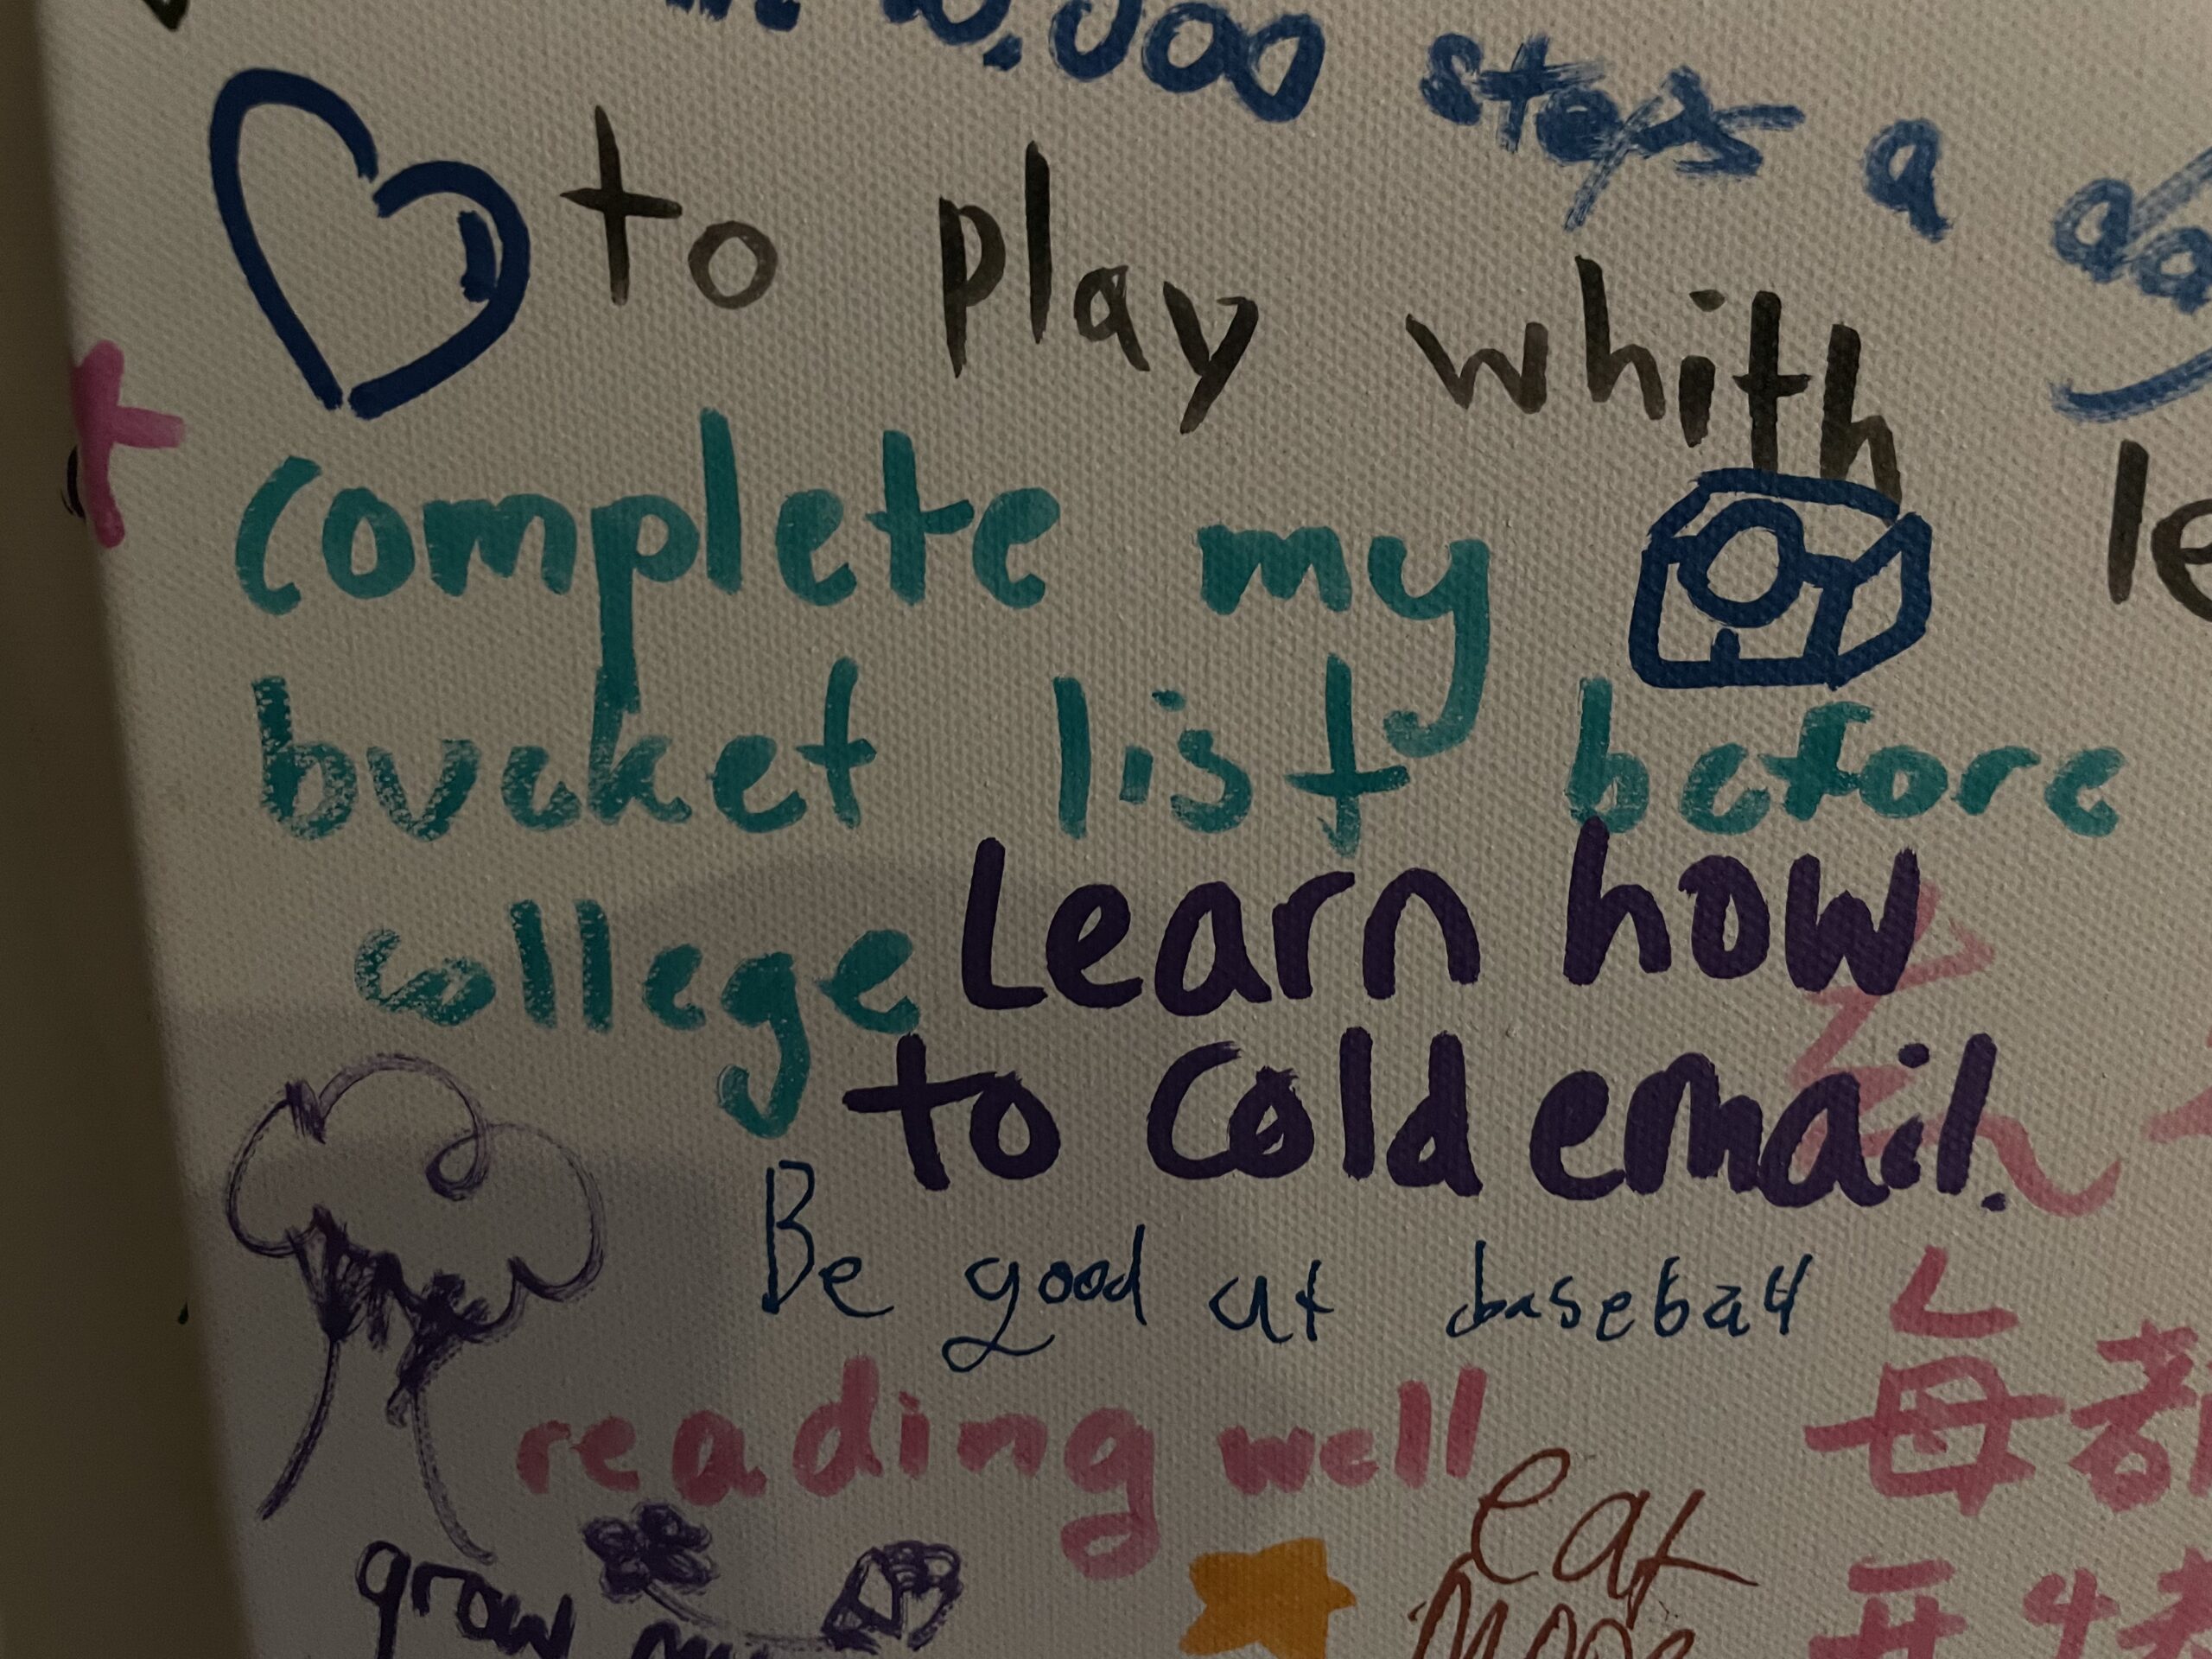 10,000 steps a
to play whith
complete my
bucket list before
college
Learn how
to cold email.
Be good at baseball
reading well
每都
eat
grow my
more